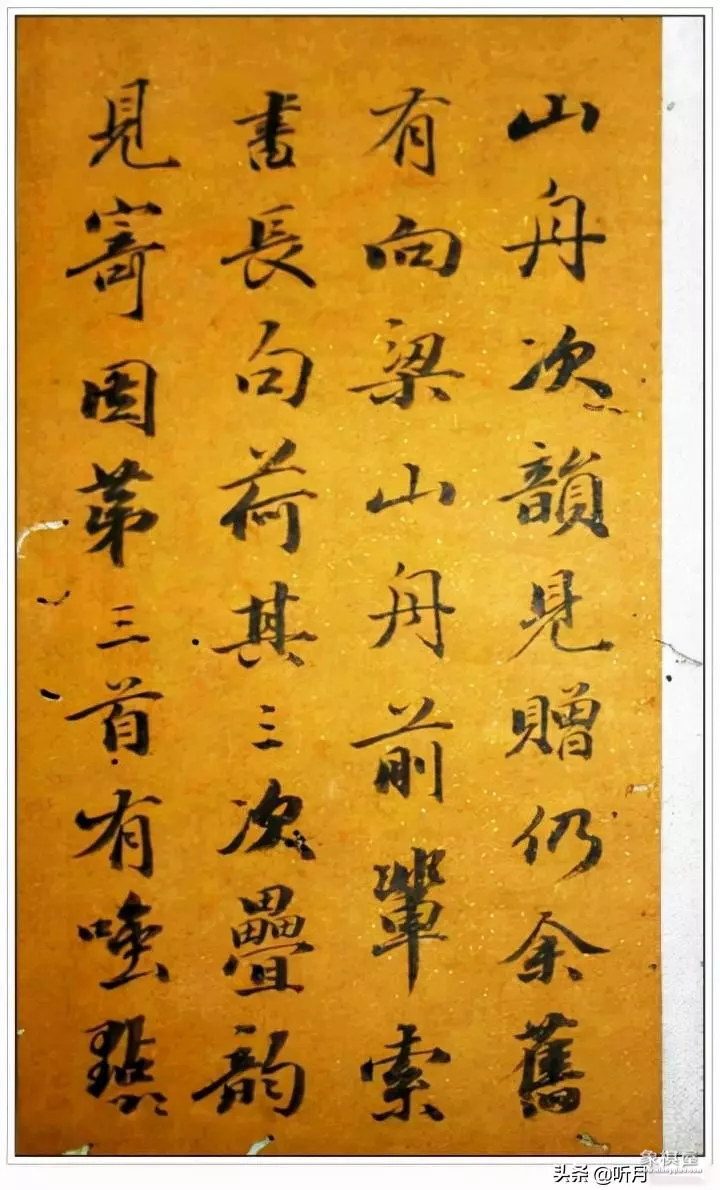 山舟次韻見贈仍余舊
有向梁山舟前輩索
書長句荷其三次疊韵
見寄因第三首有嗤點
头条 @听月